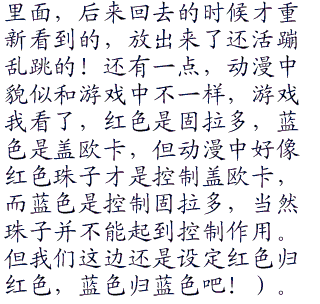 里面，后来回去的时候才重
新看到的，放出来了还活蹦
乱跳的！还有一点，动漫中
貌似和游戏中不一样，游戏
我看了，红色是固拉多，蓝
色是盖欧卡，但动漫中好像
红色珠子才是控制盖欧卡，
而蓝色是控制固拉多，当然
珠子并不能起到控制作用。
但我们这边还是设定红色归
红色，蓝色归蓝色吧！）。